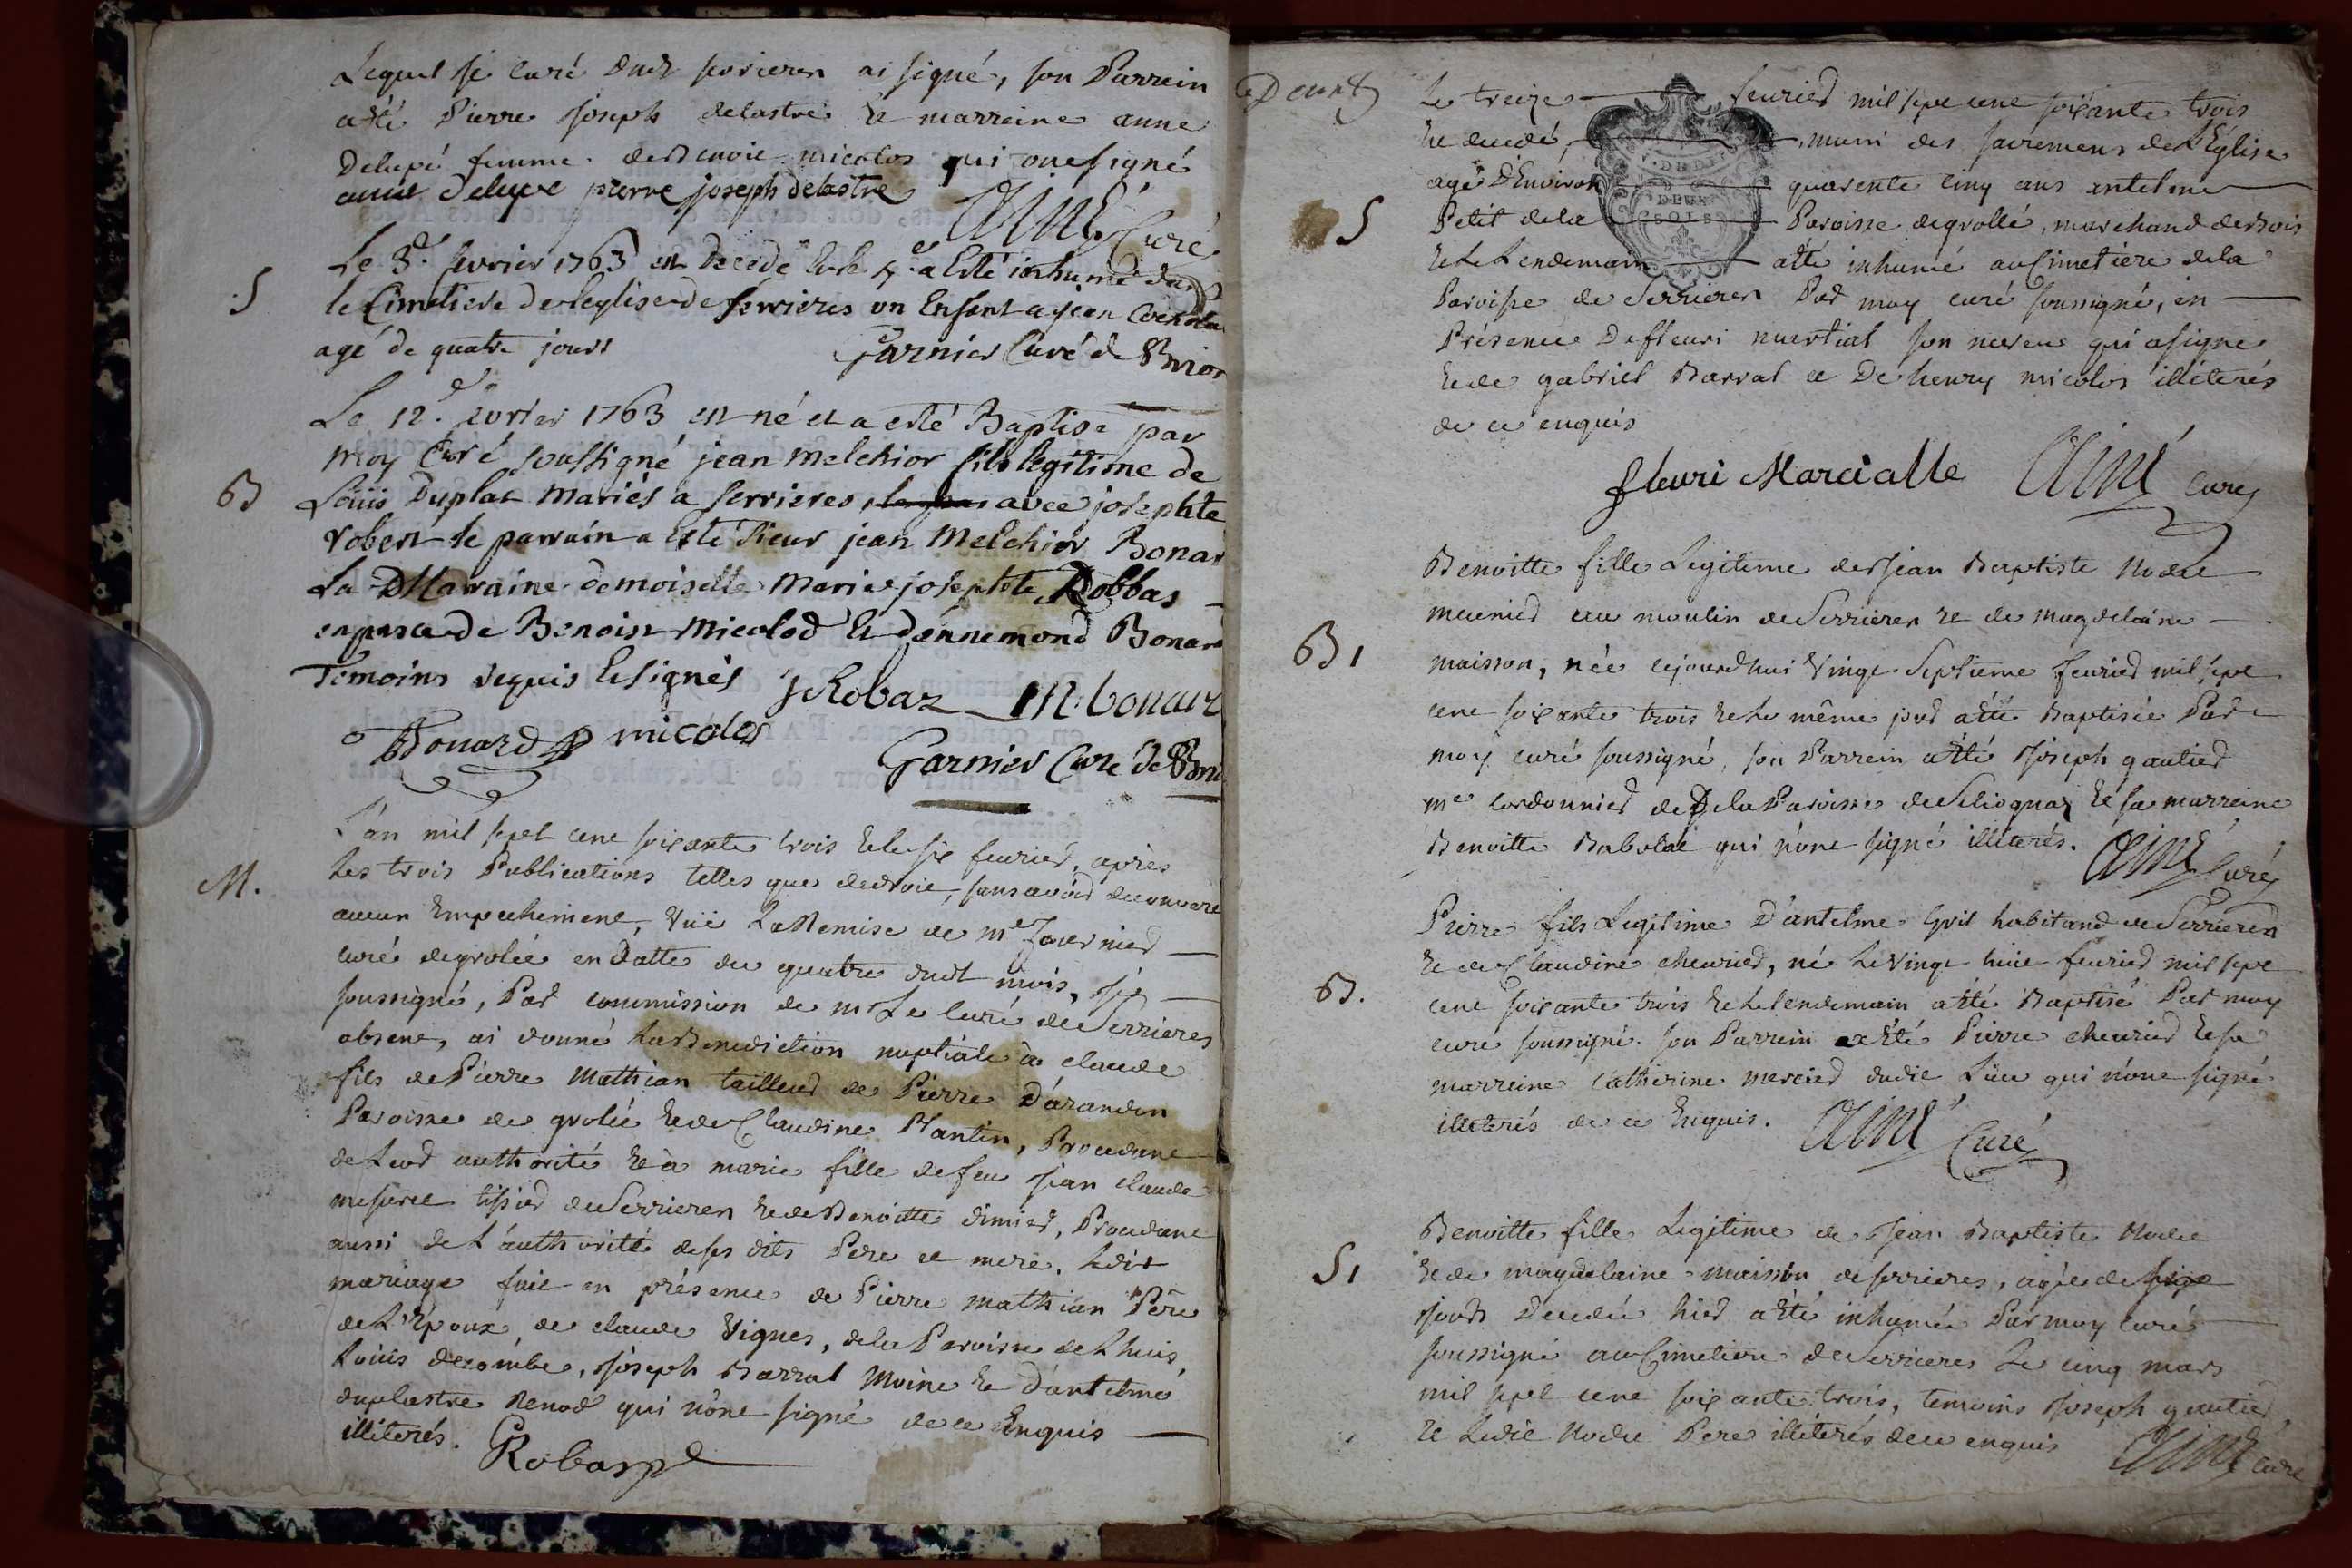 Lequel je curé dudt serrieres ai signé, son Parrein
a été Pierre joseph delastre Et marreine anne
Delupé femme de Benoit micolos qui ont signé
anne delupe pierre joseph delastre
Aimé Curé
S
Le 3e. fevrier 1763 est Decedé et le 4e. a Esté inhumé dans
le Cimetiere de leglise de serrieres un Enfant a jean
agé de quatre jours
Garnier Curé de Brior
Le 12e. fevrier 1763 est né et a esté Baptisé par
B
moy Curé soussigné jean melchior fils legitime de
Loüis Duplat mariés a serrieres, avec josephte
robert le parrain a Esté sieur jean Melchior Bonar
La Maraine demoiselle marie josephte Robbas
en pnsce de Benoist Micolod Et dennemond Bonar
Temoins requis Et signés
J Robaz M. bonard
Bonard B micolos
Garnier Curé de Bri
L'an mil sept cent soixante trois Et le six feuried, après
M.
Les trois Publications telles que de droit, sans avoir decouvert
aucun Empechement, Vüe La Remise de me fournied
curé de grolée en Datte du quatre dudt mois, je
soussigné, Par commission de mr Le curé de Serrieres
absent, ai donné La Benediction nuptiale à claude
fils de Pierre Mathian tailleud de Pierre D'arandon
Paroisse de grolée Et de Claudine Plantin, Procedant
de Leud authorité Et à marie fille de feu jean claude
tissied de Serrieres Et de Benoitte dimied, Procedant
aussi de L'authorité de ses dits Pere et mere. Ledit
mariage fait en présence de Pierre mathian Père
de L'Epoux, de claude Vignes, de la Paroisse de Lhuis,
Loüis decombe, joseph Barral Moine Et d'antelme
duplastre Renod qui n'ont signé de ce Enquis
illiterés.
Robaz pe
Le treize feuried mil sept cent soixante trois
Et decedé, muni des sacremens de L'Église
agé D'Environ quarente cinq ans antelme
DEUX
SOLS
S
Petit de la Paroisse de grollé, marchand de Bois
Et Le Lendemain a été inhumé au Cimetière de la
Paroisse de Serrieres Par moy curé soussigné, en
Présence de fleuri martial son neveu qui a signé
Et de gabriel Barral et De henry micolos illéterés
de ce enquis
fleuri Marcialle Aimé curé
Benoitte fille Legitime de Jean Baptiste Nodet
meunied au moulin de Serrieres Et de magdelaine
B 1
maisson, née cejourd'hui Vingt Septieme feuried mil sept
cent soixante trois Et Le même jour a été Baptisée Par
moy curé soussigné, son Parrein a été Joseph gautied
me cordonnied de De la Paroisse de Seliognaz Et sa marreine
Benoitte Babolat qui n'ont signé illiterés. Aimé Curé
Pierre fils Legitime D'antelme Goit habitand de Serrieres
Et de Claudine cheuried, né Le Vingt huit feuried mil sept
B.
cent soixante trois Et Le lendemain a été Baptisé Par moy
curé soussigné. son Parrein a été Pierre cheuried Et sa
marreine Catherine mercied dudit Lieu qui n'ont signé
illiterés de ce Enquis. Aimé Curé
Benoitte fille Legitime de Jean Baptiste Nodet
S 1
Et de magdelaine maisson de serrieres, agée de six
jours Decedée hied a été inhumée Par moy curé
soussigné au Cimetiere de Serrieres Le cinq mars
mil sept cent soixante trois, temoins Joseph gautied
Et Ledit Nodet Pere illiterés de ce enquis Aimé curé